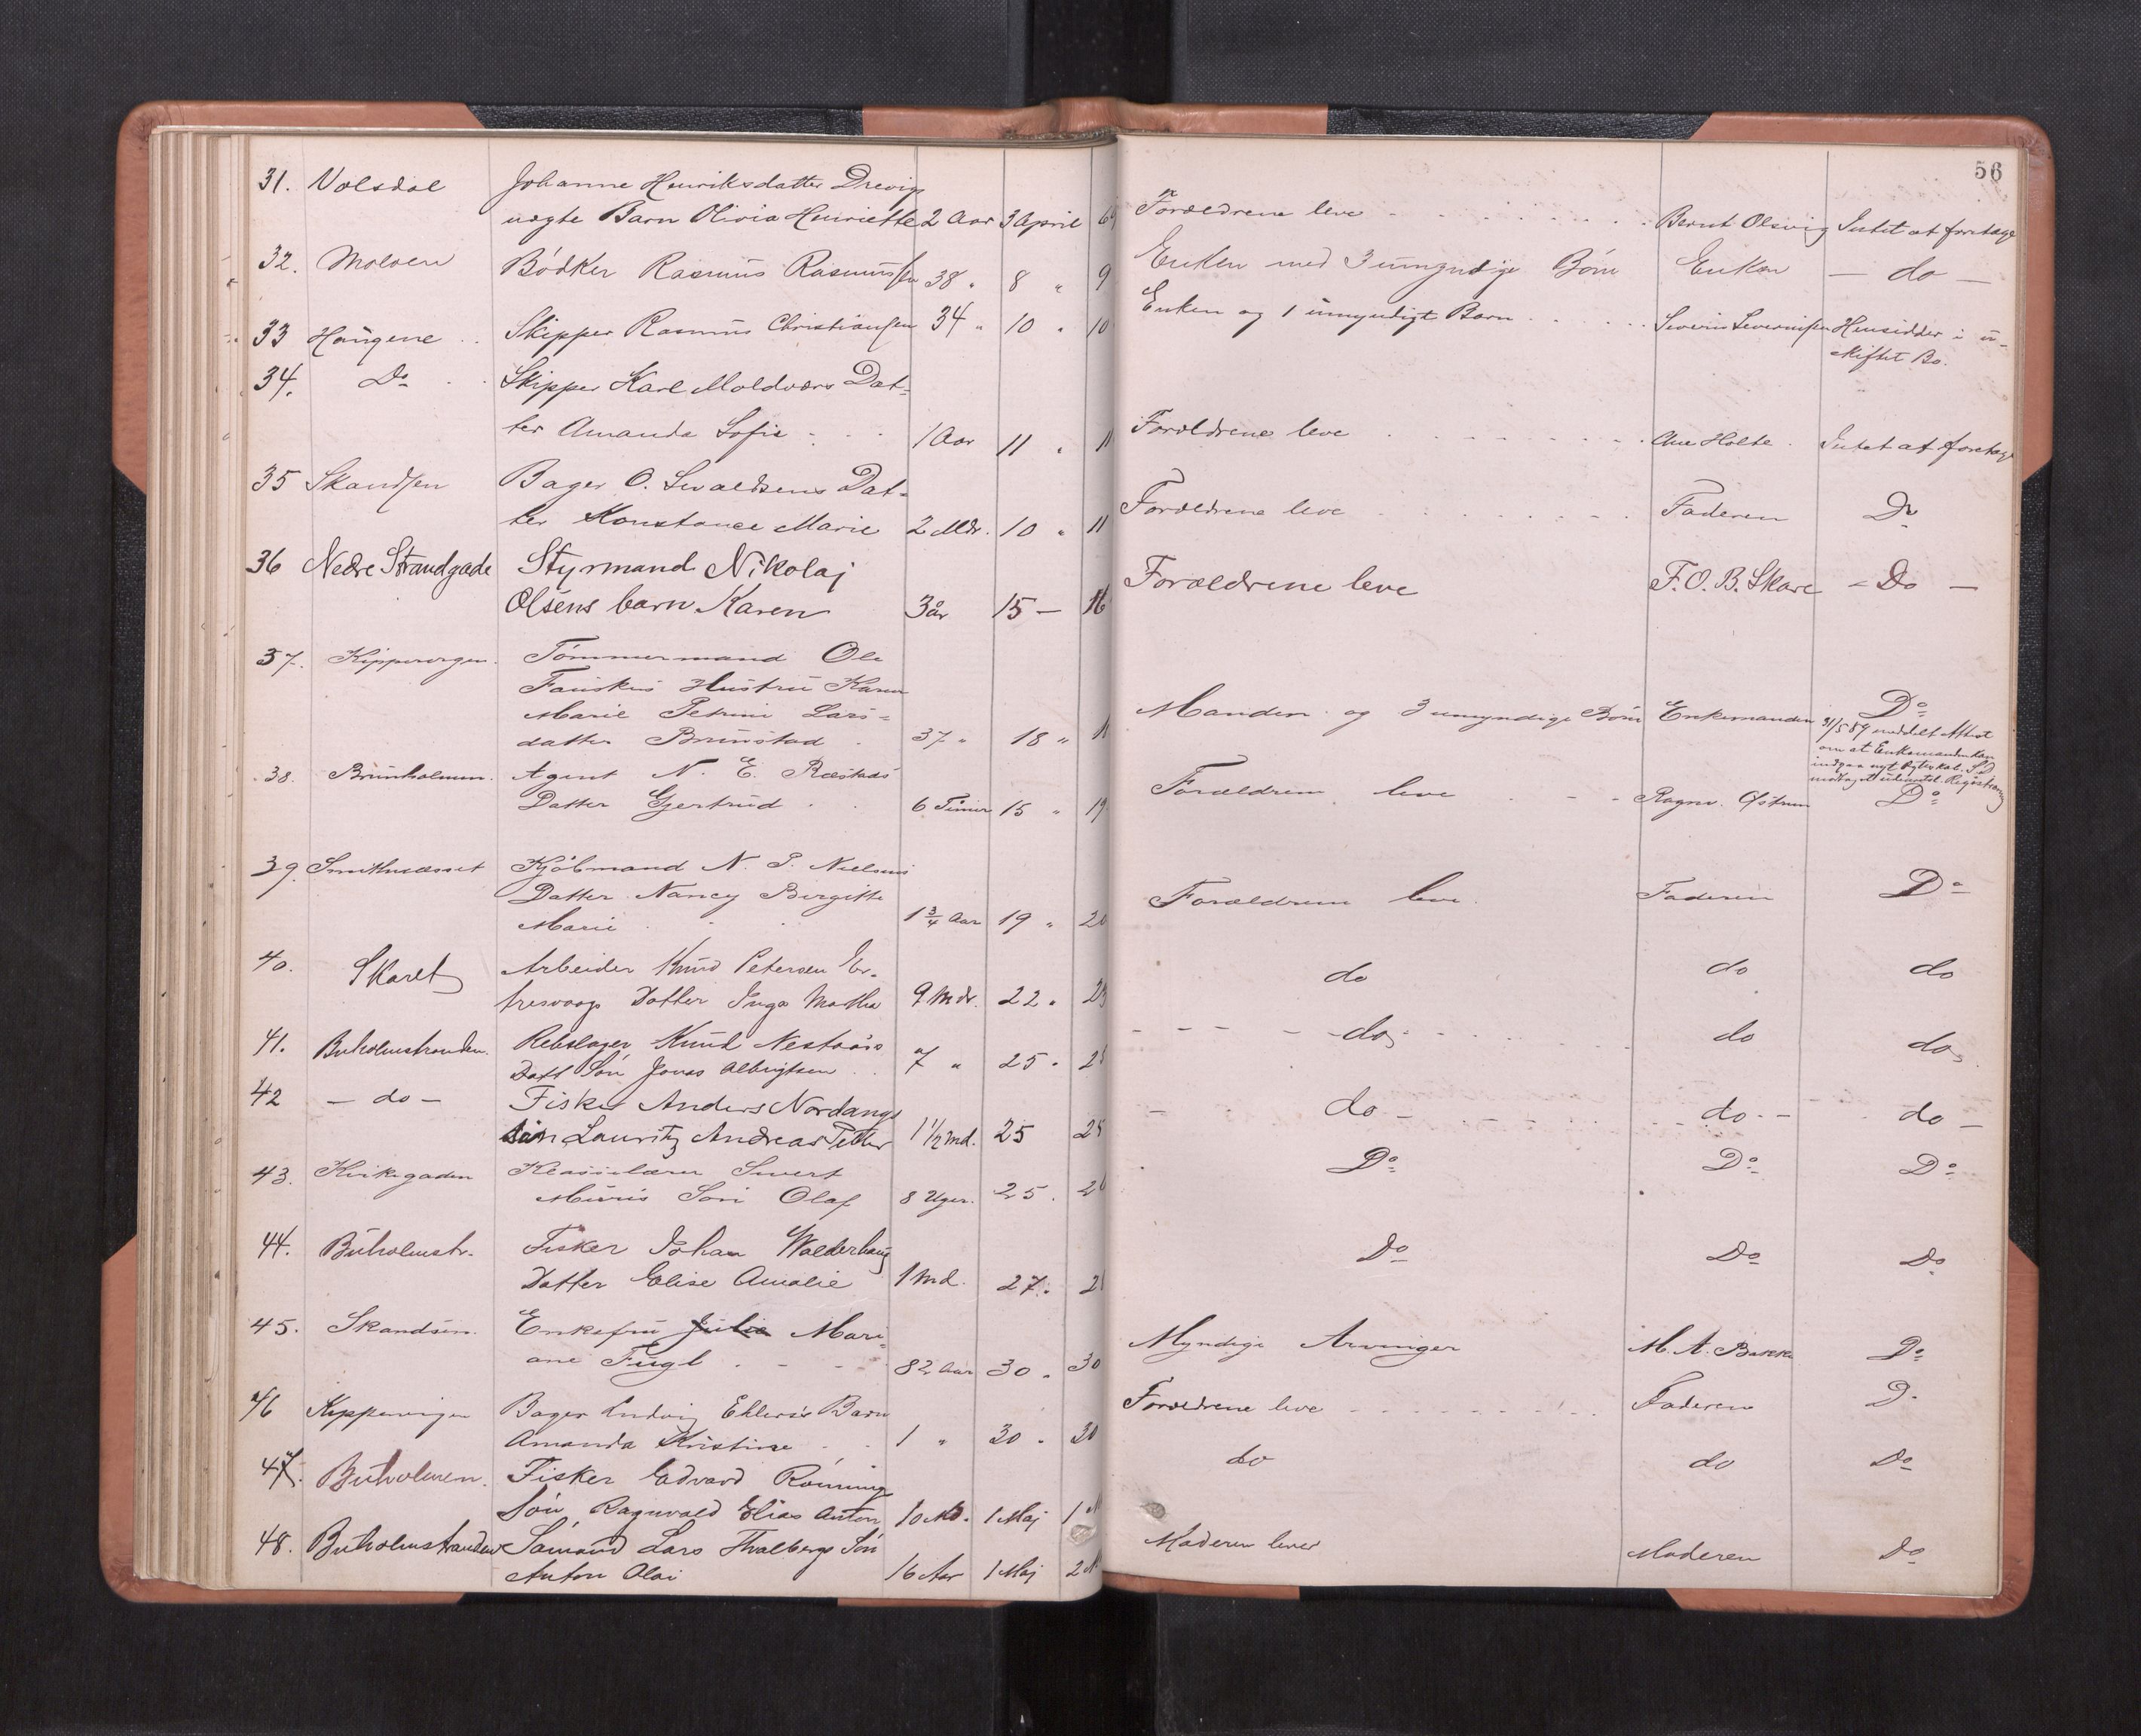 56
31. Volsdal Johanne Henriksdatter Drevig
uægte Barn Olivia Henriette 2 Aar 3 April Forældrene leve Bernt Olsvig Intet at foretage
32. Molven Bödker Rasmus Rasmussen 38 " 8 " 9 Enken med 3 umyndige Börn Enken — do —
33 Haugene Skipper Rasmus Christiansen 34 " 10 " 10 Enken og 1 umyndigt Barn Severin Severinsen Hensidder i u-
skiftet Bo.
34. Do Skipper Karl Moldværs Dat-
ter Amanda Sofie 1 Aar 11 " 11 Forældrene leve Ane Holte. Intet at foretage
35 Skandsen Bager O. Sevaldsens Dat-
ter Konstance Marie 2 Mdr. 10 " 11 Forældrene leve Faderen Do
36 Nedre Strandgade Styrmand Nikolaj
Olsens barn Karen 3 år 15 — 16 Forældrene leve F. O. B. Skare - Do —
37. Kippervigen. Tömmermand Ole
Fauskes Hustru Karen
Marie Petrine Lars-
datter Brunstad 37 " 18 " Manden og 3 umyndige Börn Enkemanden Do
31/5 89 meddelt Attest
om at Enkemanden kan
indgaa nyt Egteskab.
38. Brunholmen. Agent N. E. Ræstads
Datter Gjertrud 6 Timer 15 " 19 Forældrene leve Ragnv. Do
39. Kjöbmand N. P. Nielsens
Datter Nancy Birgitte
Marie 1 3/4 Aar 19 " 20 Forældrene leve. Faderen Do
40. Skaret Arbeider Knud Petersen
Datter Inga Martha 9 Mdr. 22 " 23 do do do
41. Buholmstranden. Rebslager Knud
Datt Sön Jonas Albrigtsen 7 " 25 " do do do
42 — do — Fisker Anders Nordangs
Sön Lauritz Andreas Petter 1 1/2 Md. 25 25 do — do — do —
43. Kirkegaden Sivert
Sön Olaf 8 Uger. 25. Do Do Do
44. Buholmstr. Fisker Johan Walderhaug
Datter Elise Amalie 1 Md. 27. Do Do Do
45. Skandsen. Enkefru Julie Mari-
ane Fugl 82 Aar 30 " 30 Myndige Arvinger M. A. Bakke Do
46 Kippervigen Bager Ludvig Ehlers's Barn
Amanda Kristine 1 " 30 " 30 Forældrene leve Faderen D.
47. Buholmen. Fisker Edvard Rönnings
Sön Ragnvald Elias Anton 10 Md. 1 Maj 1 do do Do
48. Buholmstranden Sömand Lars Thalbergs Sön
Anton Olai 16 Aar 1 Maj 2 Moderen lever Moderen Do